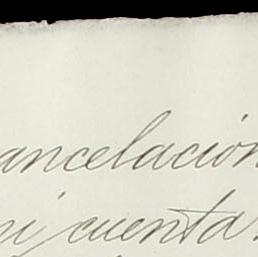 ancelación
ni cuenta.